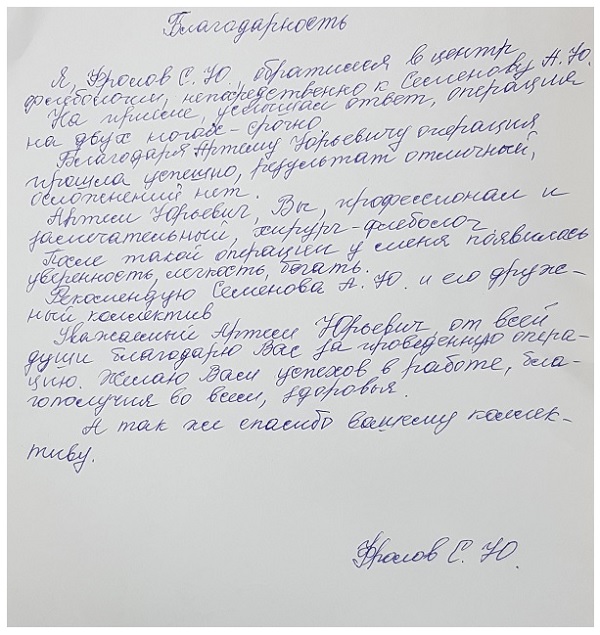 Благодарность
Я, Фролов С. Ю., обратился в центр
флебологии, непосредственно к Семенову А. Ю.
На приеме, услышал ответ, операция
на двух ногах - срочно
Благодаря Артему Юрьевичу операция
прошла успешно, результат отличный,
осложнений нет.
Артем Юрьевич, Вы, профессионал и
замечательный, хирург-флеболог.
После такой операции у меня появилась
уверенность, легкость, бегать.
Рекомендую Семенова А. Ю. и его друж-
ный коллектив
Уважаемый Артем Юрьевич, от всей
души благодарю Вас за проведенную опера-
цию. Желаю Вам успехов в работе, бла-
гополучия во всем, здоровья.
А так же спасибо вашему коллек-
тиву.
Фролов С. Ю.